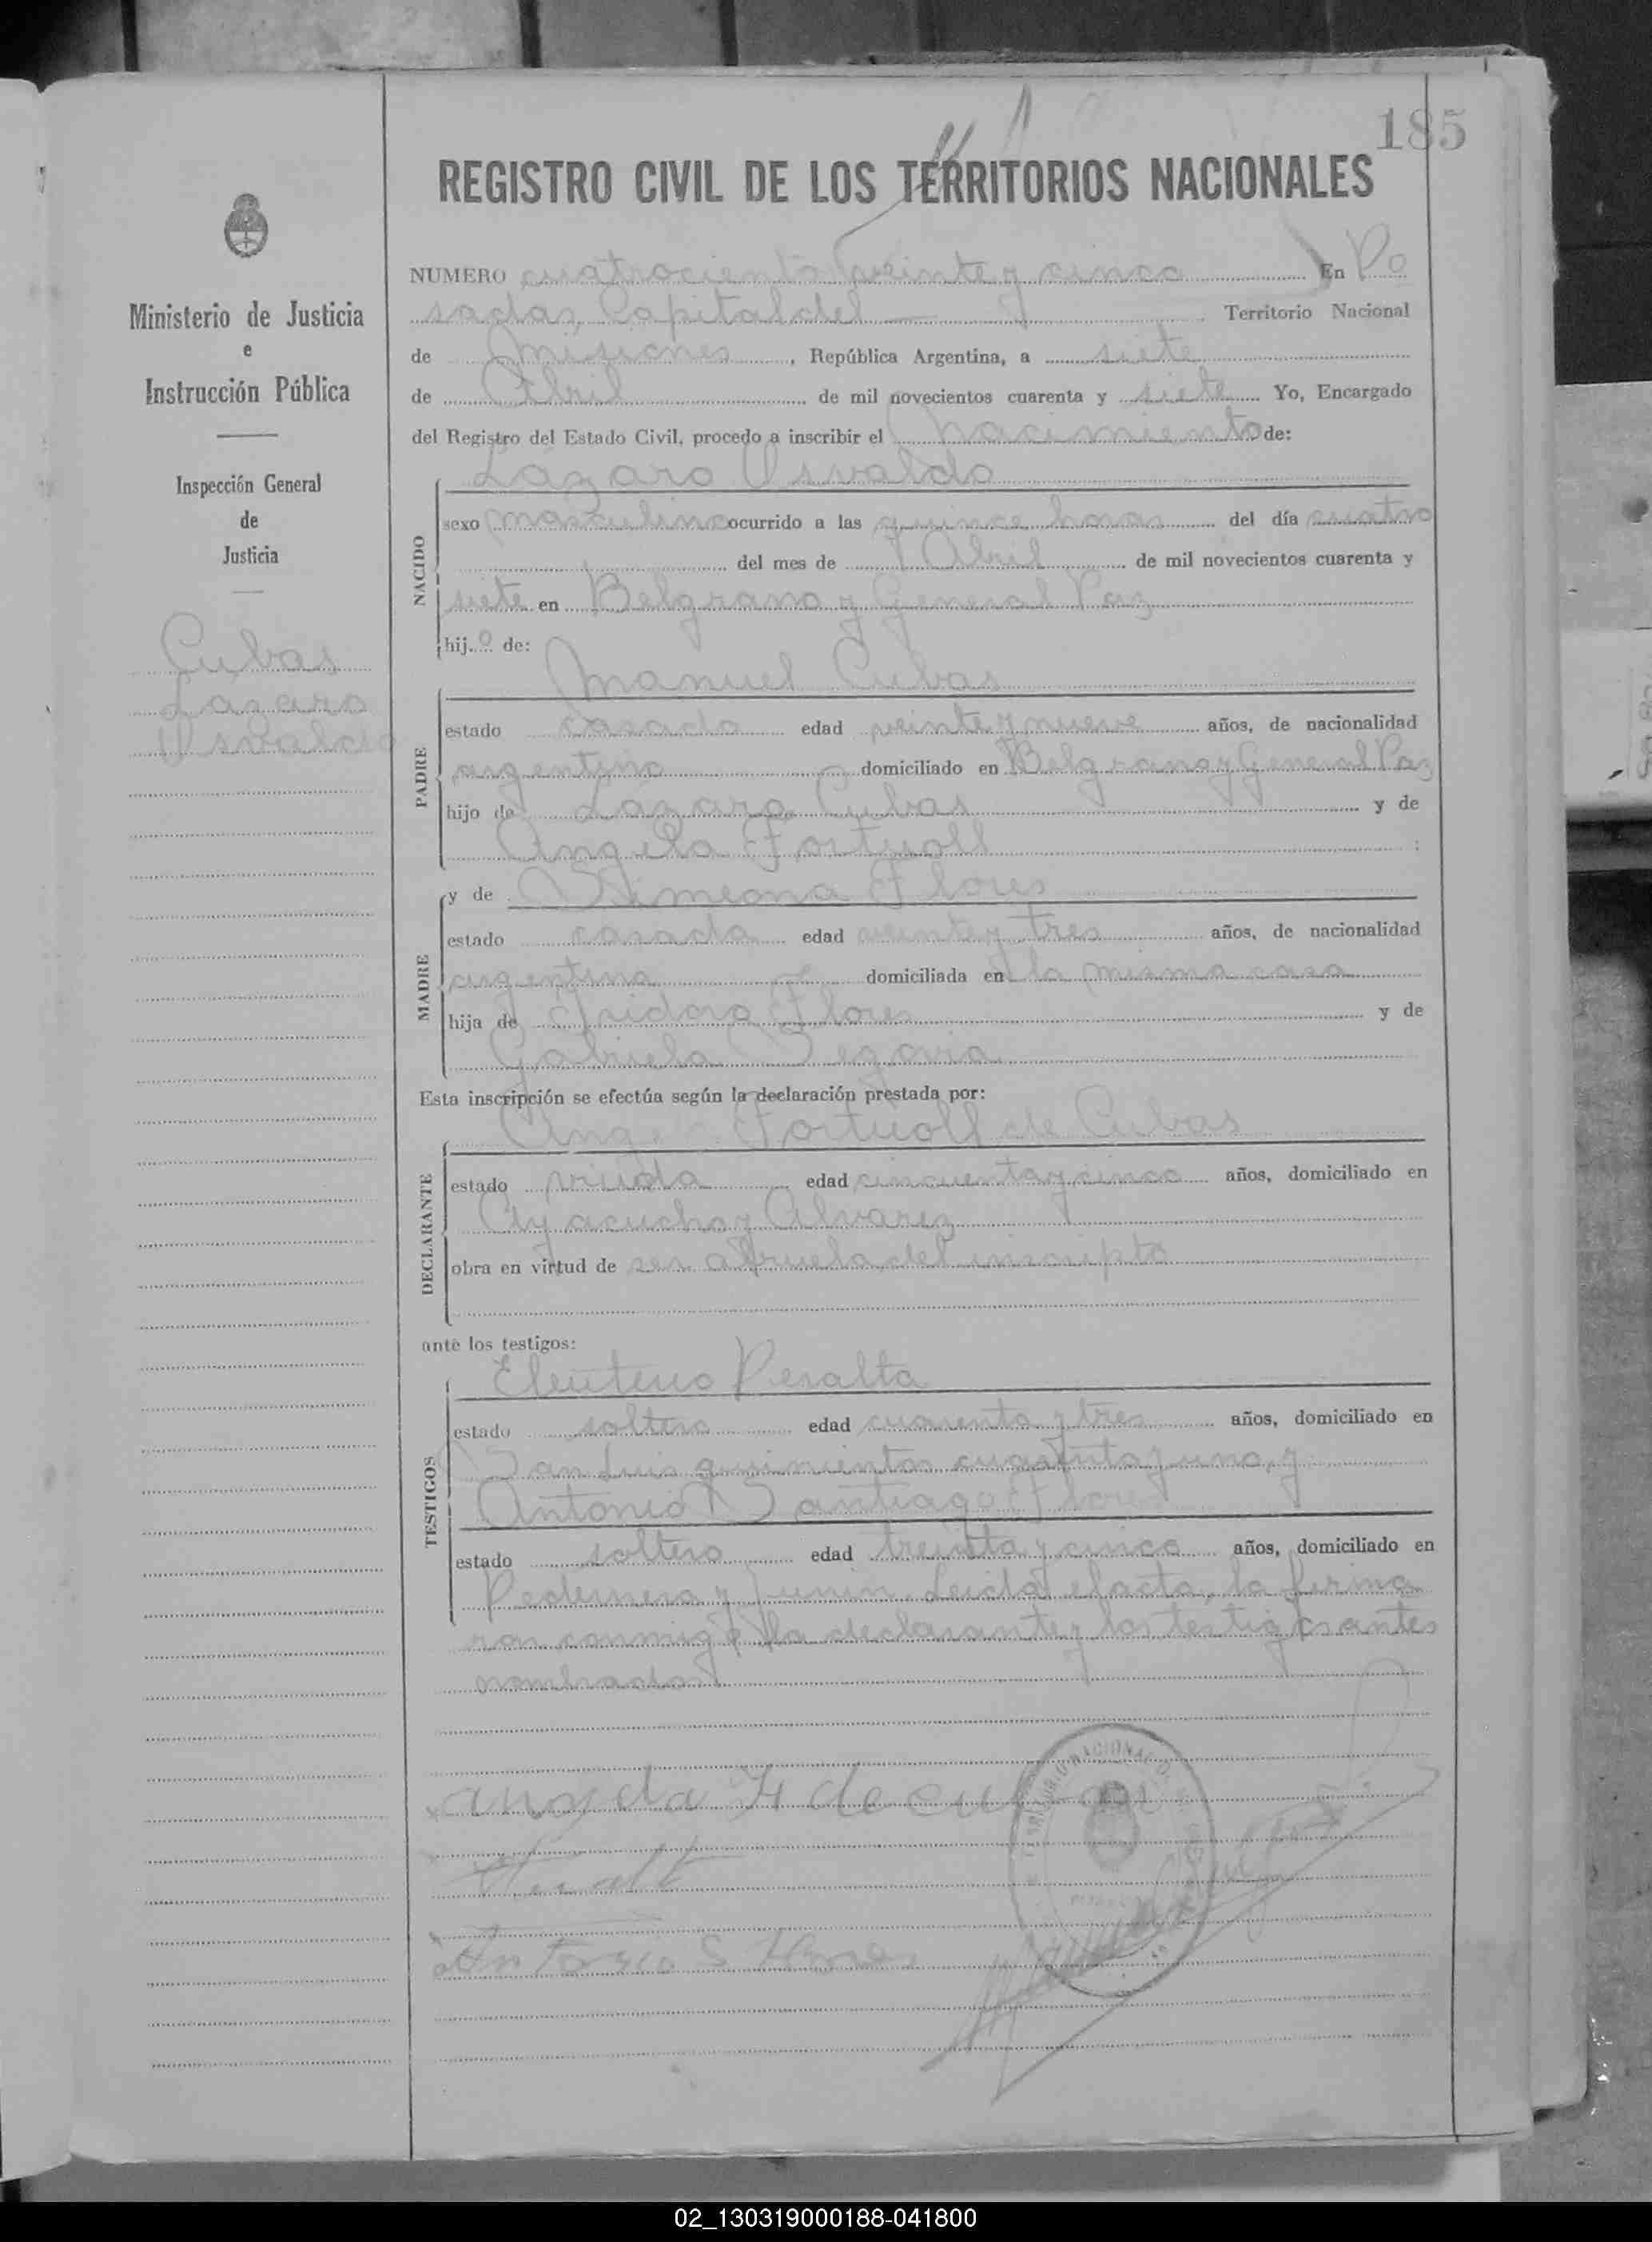 185
REGISTRO CIVIL DE LOS TERRITORIOS NACIONALES
Ministerio de Justicia
e
Instrucción Pública
Inspección General
de
Justicia
Cubas
Lazaro
Osvaldo
NUMERO cuatrociento veinte y cinco En Po
sadas, Capital del Territorio Nacional
de Misiones, República Argentina, a siete
de Abril de mil novecientos cuarenta y siete Yo, Encargado
del Registro del Estado Civil, procedo a inscribir el nacimiento de:
Lazaro Osvaldo
NACIDO
sexo masculino ocurrido a las quince horas del día cuatro
del mes de Abril de mil novecientos cuarenta y
siete en Belgrano y General Paz
hij.o de:
Manuel Cubas
PADRE
estado casado edad veinte y nueve años, de nacionalidad
argentino domiciliado en Belgrano y General Paz
hijo de Lázaro Cubas y de
Angela Fortuoll ;
MADRE
y de Simeona Flores
estado casada edad veinte y tres años, de nacionalidad
argentina domiciliada en la misma casa
hija de Isidoro Flores y de
Gabriela Segovia
Esta inscripción se efectúa según la declaración prestada por:
Fortuoll de Cubas
DECLARANTE
estado viuda edad cincuenta y cinco años, domiciliado en
Ayacucho y Alvarez
obra en virtud de ser abuela del inscripto
ante los testigos:
Eleuterio Peralta
TESTIGOS
estado soltero edad cuarenta y tres años, domiciliado en
San Luis quinientos cuarenta y uno, y
Antonio Santiago Flores
estado soltero edad treinta y cinco años, domiciliado en
Pedernera y Junin. Leida el acta, la firma
ron conmigo la declarante y los testigos antes
nombrados.
angela F de cubas
Antonio S Flores
02_130319000188-041800